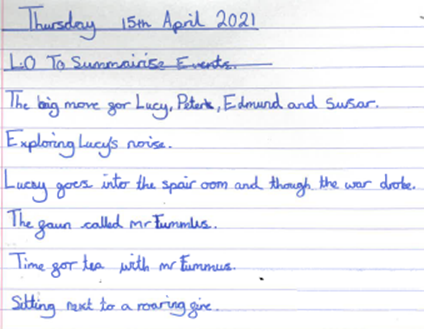 Thursday 15th April 2021
L.O To Summairise Events.
The big move for Lucy, Peter, Edmund and Susar.
Exploring Lucy's noise.
Lucy goes into the spair oom and though the war drobe.
The faun called mr Tummlus.
Time for tea with mr Tummus.
Sitting next to a roaring fire.